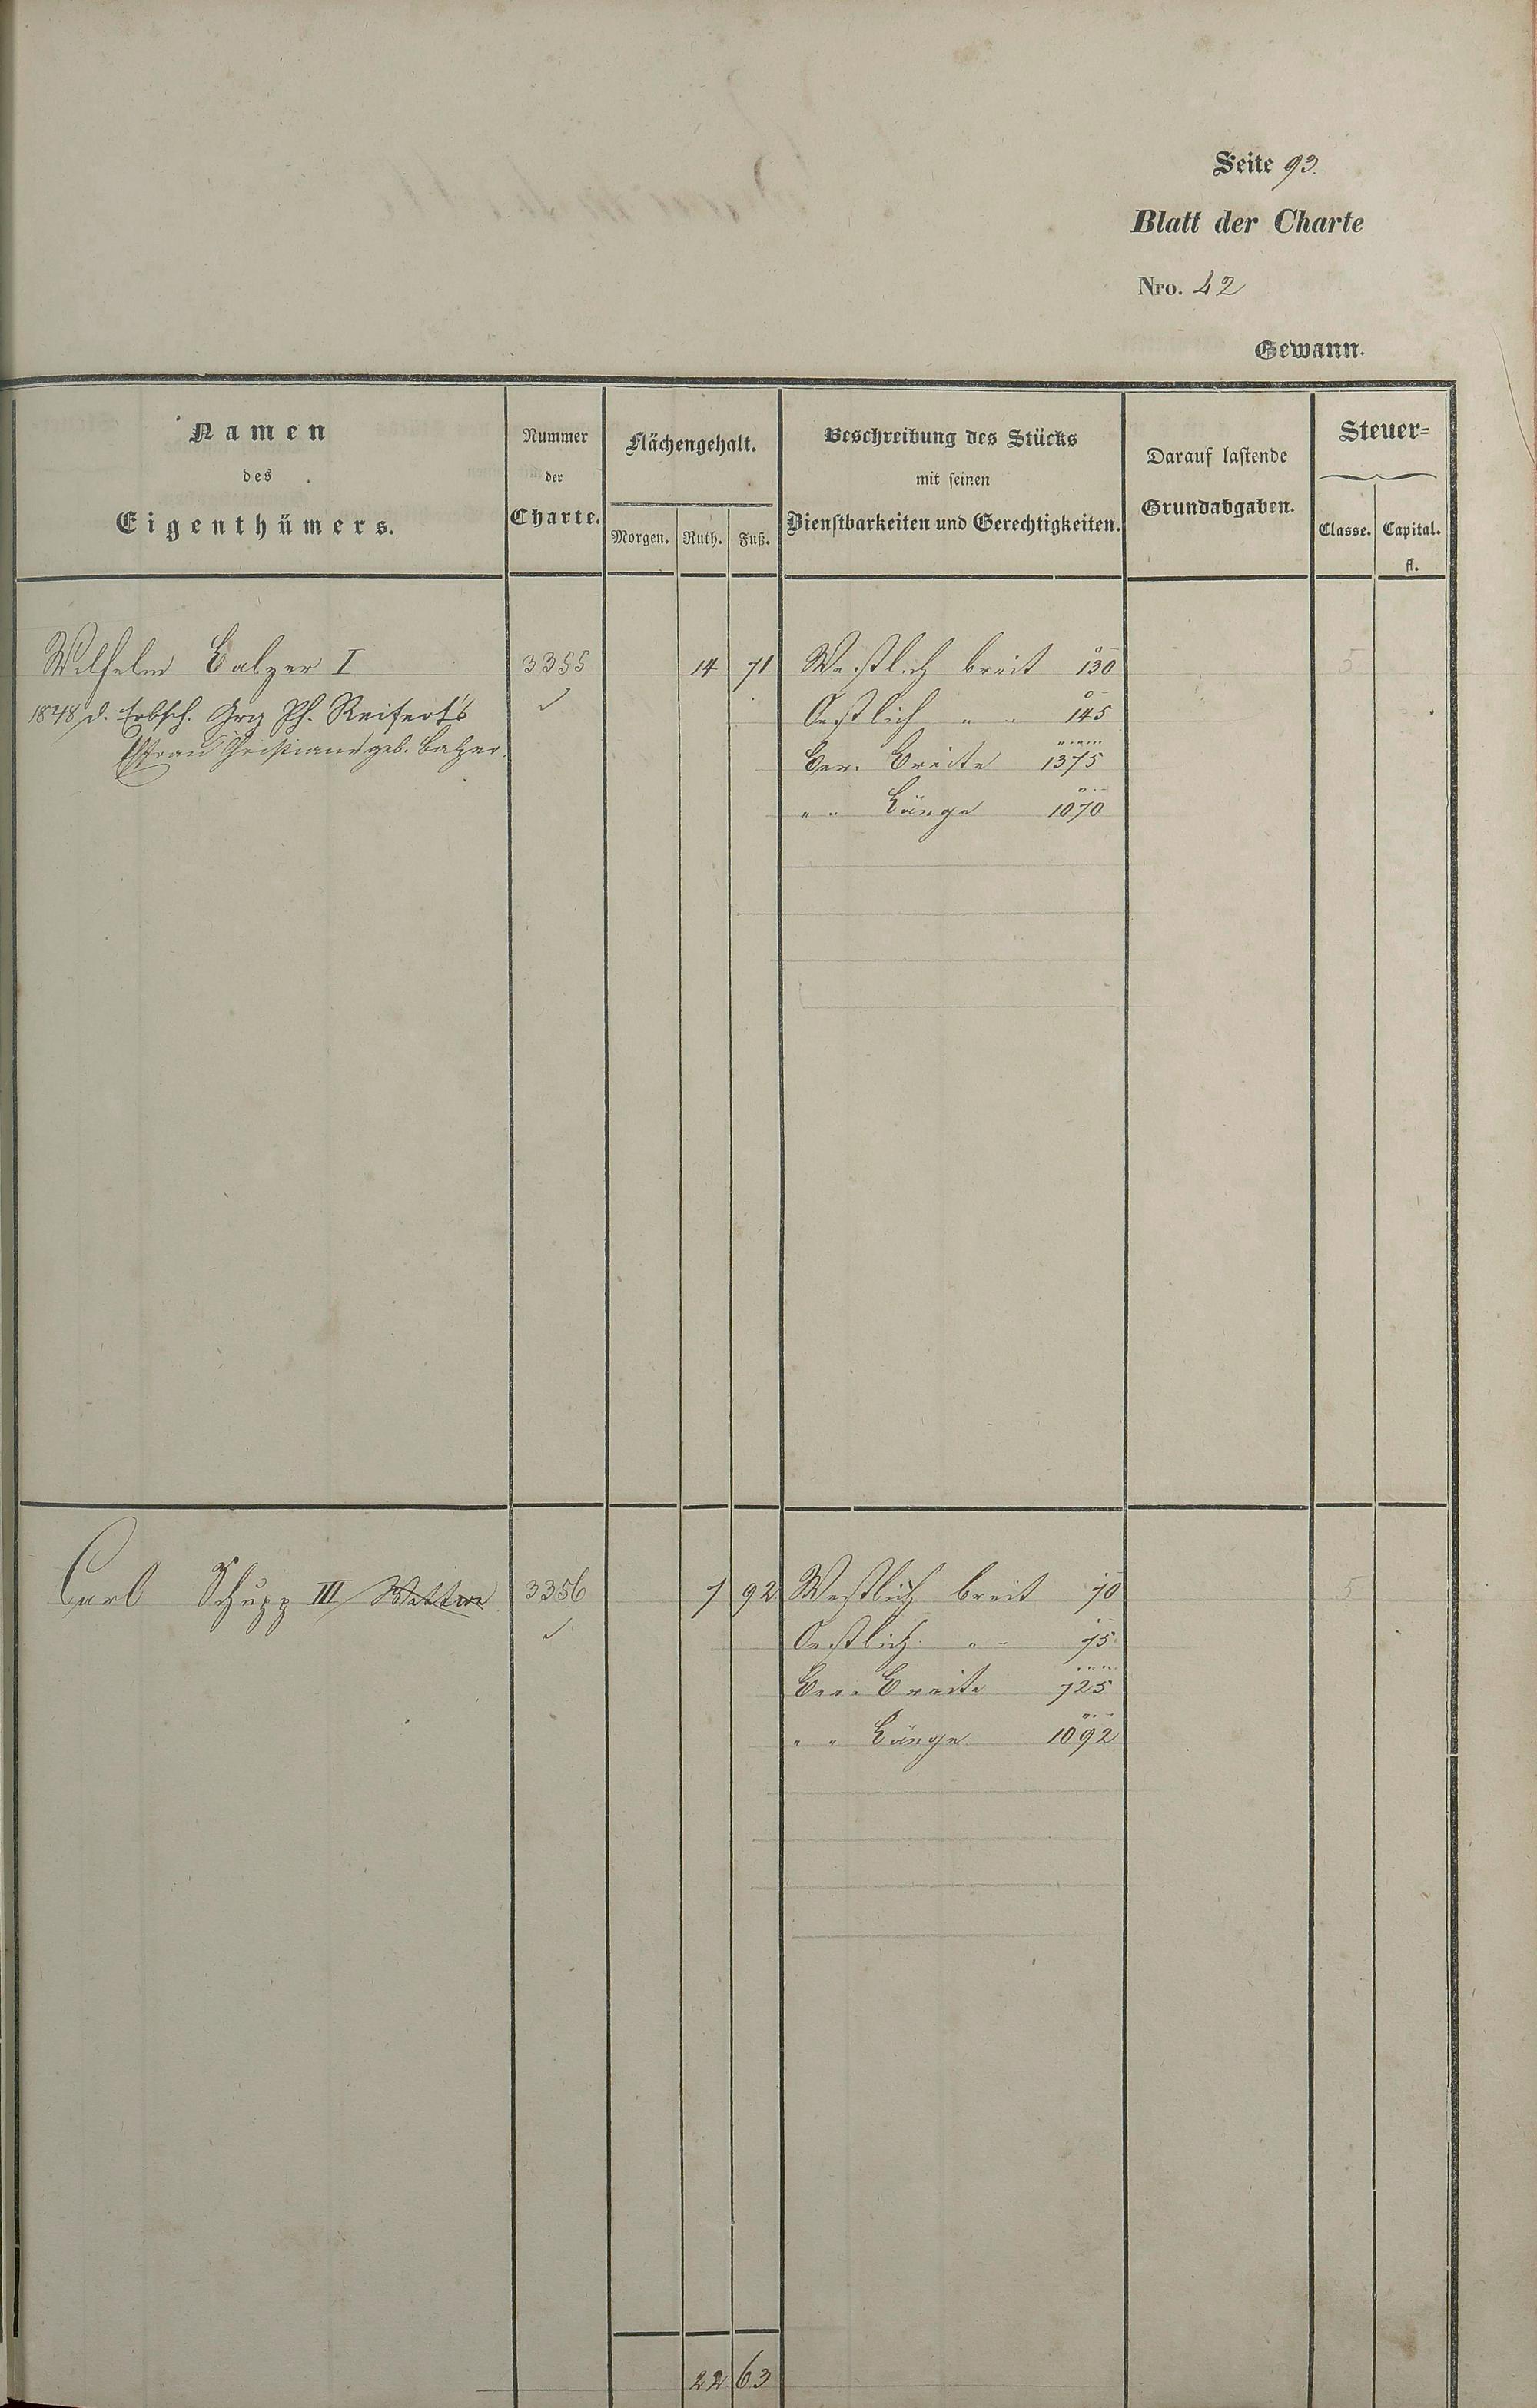 Seite 93.
Blatt der Charte
Nro. 42
Gewann.
Namen
des
Eigenthümers.
Nummer
der
Charte.
Flächengehalt.
Morgen. Ruth. Fuß.
Beschreibung des Stücks
mit seinen
Dienstbarkeiten und Gerechtigkeiten.
Darauf lastende
Grundabgaben.
Steuer-
Classe. Capital.
fl.
Wilhelm Balzer I 3355 14 71 Westlich breit 130 5
1848 d. Erbsch. Grg Ph. Reifert's Oestlich " " 145
Ehfrau Christiane geb. Balzer. Ber. Breite 1375
" " Länge 1070
Carl Schupp III Wittwe 3356 7 92 Westlich breit 70 5
Oestlich " " 75
Ber. Breite 725
" " Länge 1092
22 63